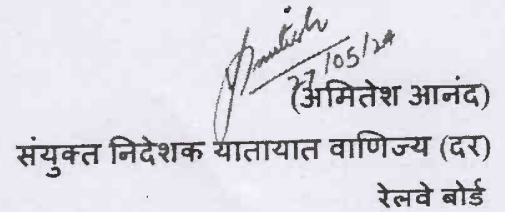 27/05/24
(अमितेश आनंद)
संयुक्त निदेशक यातायात वाणिज्य (दर)
रेलवे बोर्ड